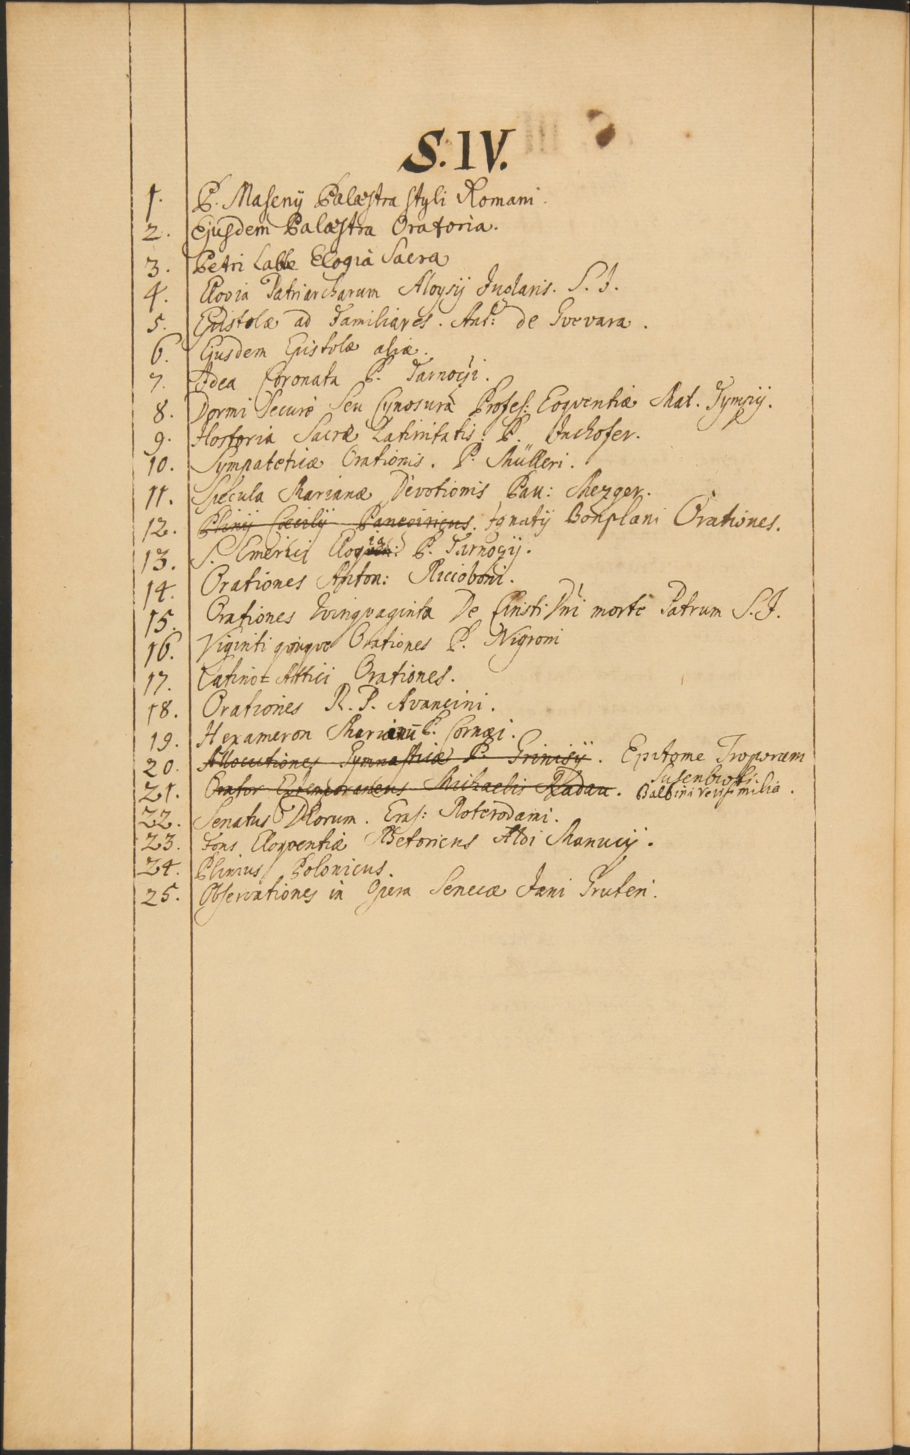 S. IV.
1. P. Masenij Palæstra styli Romani.
2. Ejusdem Palæstra Oratoria.
3. Petri Labbe Elogia Sacra
4. Elogia Patriarcharum Aloysij Juglaris. S. J.
5. Epistolæ ad Familiares. Ant: de Gvevara.
6. Ejusdem Epistolæ aliæ.
7. Idea Coronata P. Tarnocij.
8. Dormi Securè Seu Cynosura Profes: Eoqventiæ Mat. Tympij.
9. Hostoria Sacræ Latinitatis. P. Inchofer.
10. Sympateticæ Orationis. P. Mülleri.
11. Specula Marianæ Devotionis Pau: Mezger.
12. Plinij Cæcilij Panegiricus. Ignatij Bonplani Orationes.
13. S. Emerici P. Tarnogij.
14. Orationes Anton: Riccoboni.
15. Orationes Qvinqvaginta De Christi Dni morte Patrum S. J.
16. Viginti qvinqve Orationes P. Nigroni
17. Latino-Attici Orationes.
18. Orationes R. P. Avancini.
19. Hexameron Marianū P. Cornæi.
20. Allocutiones Gymnasticæ P. Grinisij. Epitome Troporum
Susenbroti.
21. Orator Extemporaneus Michaelis Radau. Balbini Verisimilia.
22. Senatus Deorum. Eras: Roterodami.
23. Fons Eloqventiæ Rhetoricus Aldi Manucij.
24. Plinius Polonicus.
25. Observationes in Opera Senecæ Jani Gruteri.